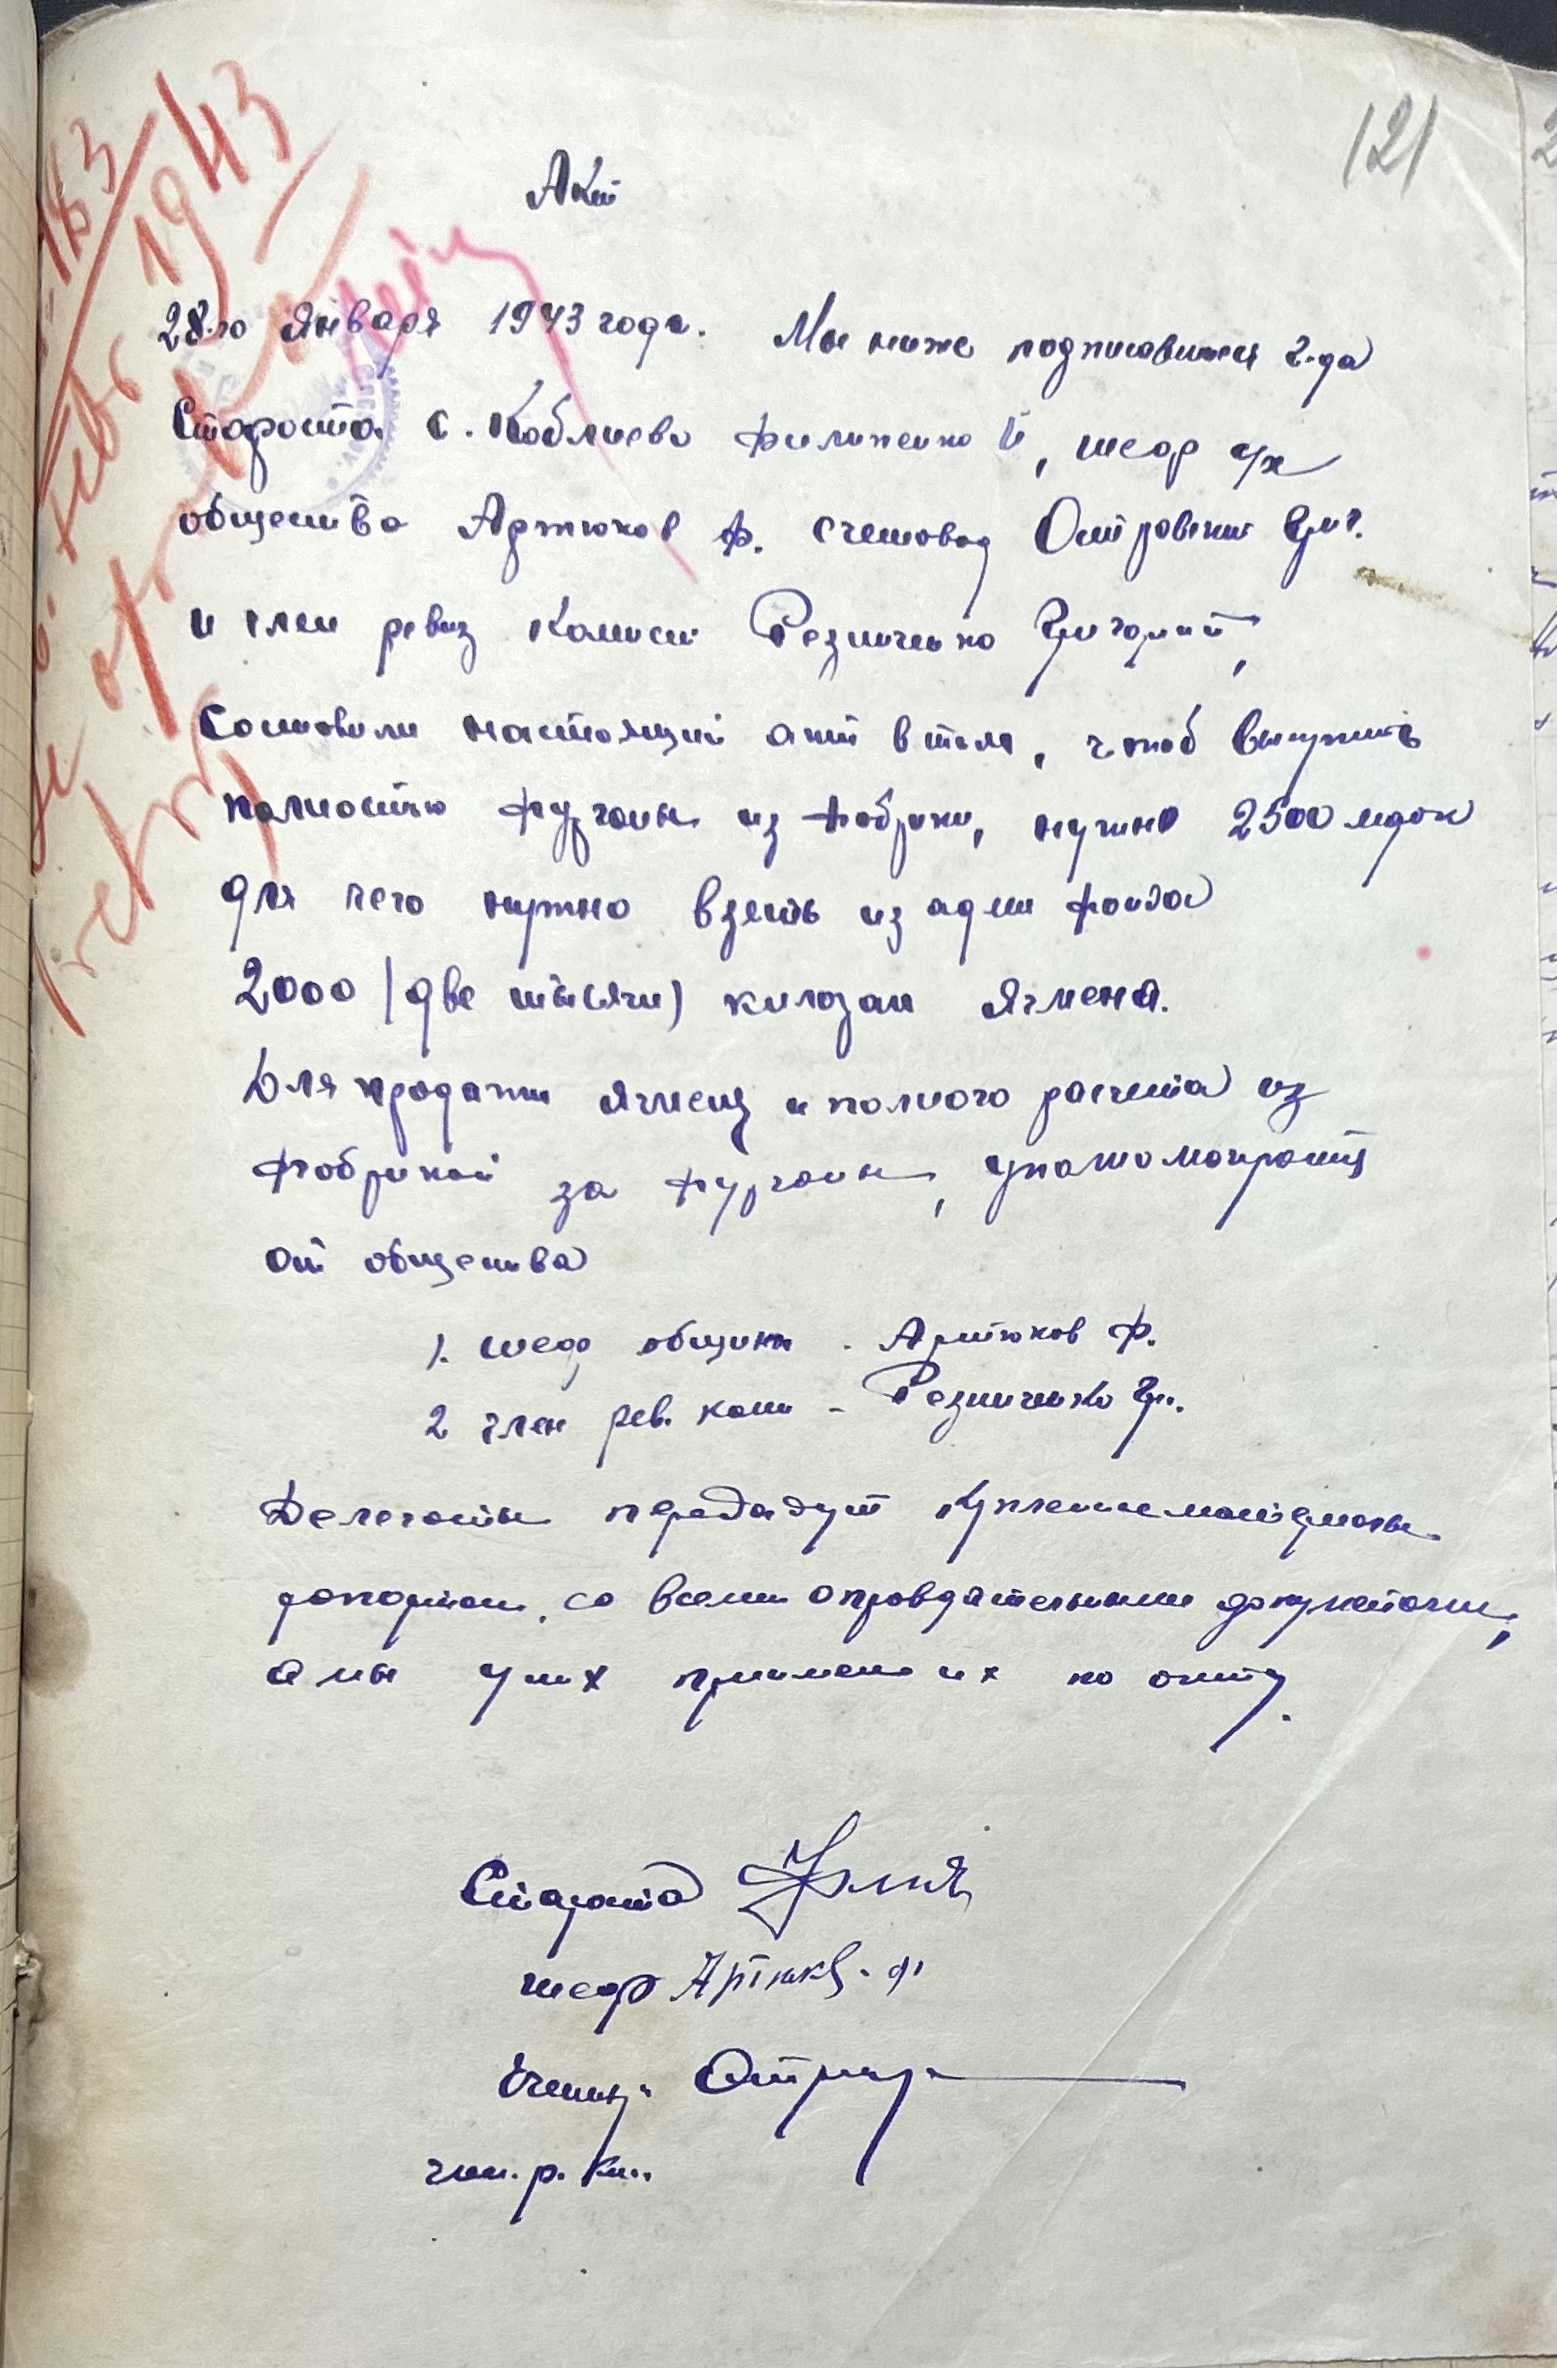 121
Акт
28-го Января 1943 года. Мы ниже подписавшиеся г-да
Староста с. Коблиево Филипенко И, шеф с/х
общества Артюхов Ф. счетовод Островский Григ.
и член ревиз комиси Резниченко Григорий,
Составили настоящий акт в том, чтоб выкупить
полностью фургоны из фабрики, нужно 2500 марок
для чего нужно взять из адми фонда
2000 (две тысячи) килограм Ячменя.
Для продажи Ячменя и полного расчета из
фабрикой за фургоны,
от общества
1. шеф общины - Артюхов Ф.
2 член рев. ком - Резниченко Гр.
Делегаты передадут
со всеми оправдательными документами,
а мы у них примем их по акту.
Староста
шеф Артюхов Ф
чл. р. ком.
183
1943